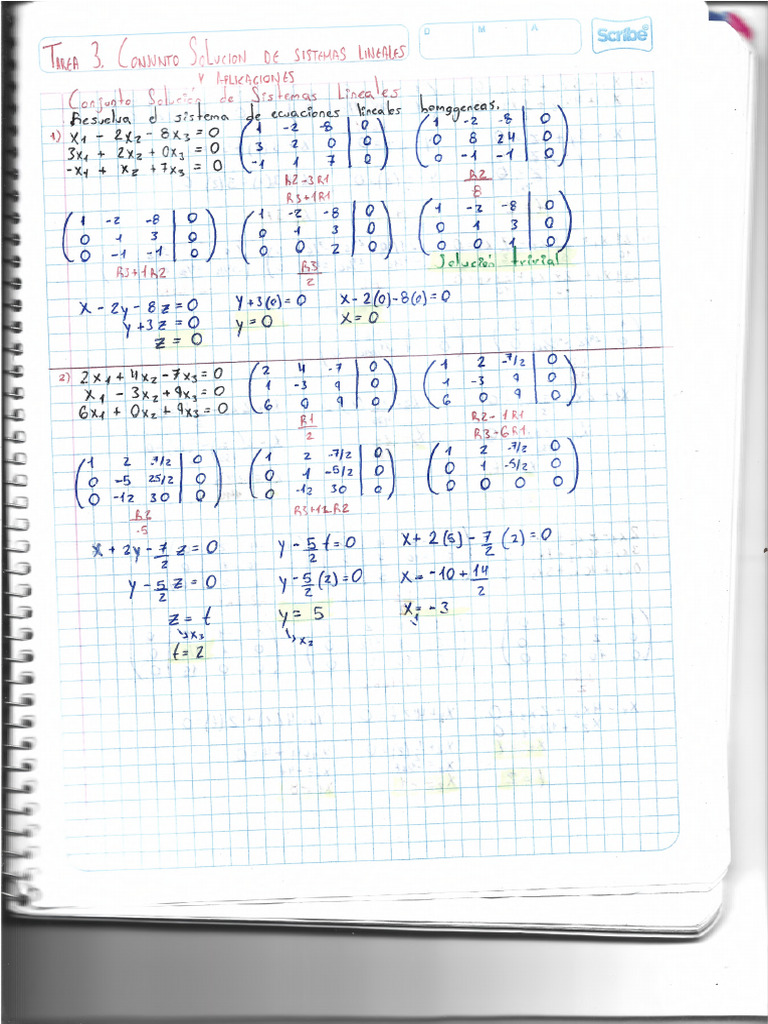 TAREA 3. CONJUNTO SOLUCION DE SISTEMAS LINEALES
Y APLICACIONES
D M A
Scribe®
Conjunto Solución de Sistemas Lineales
Resuelva el sistema de ecuaciones lineales homogeneas.
1) x1 - 2x2 - 8x3 = 0
3x1 + 2x2 + 0x3 = 0
-x1 + x2 + 7x3 = 0
1 -2 -8 | 0
3 2 0 | 0
-1 1 7 | 0
R2-3R1
R3+1R1
1 -2 -8 | 0
0 8 24 | 0
0 -1 -1 | 0
R2
8
1 -2 -8 | 0
0 1 3 | 0
0 -1 -1 | 0
R3+1R2
1 -2 -8 | 0
0 1 3 | 0
0 0 2 | 0
R3
2
1 -2 -8 | 0
0 1 3 | 0
0 0 1 | 0
Solución trivial
x - 2y - 8z = 0
y + 3z = 0
z = 0
y + 3(0) = 0
y = 0
x - 2(0) - 8(0) = 0
x = 0
2) 2x1 + 4x2 - 7x3 = 0
x1 - 3x2 + 9x3 = 0
6x1 + 0x2 + 9x3 = 0
2 4 -7 | 0
1 -3 9 | 0
6 0 9 | 0
R1
2
1 2 -7/2 | 0
1 -3 9 | 0
6 0 9 | 0
R2-1R1
R3-6R1
1 2 -7/2 | 0
0 -5 25/2 | 0
0 -12 30 | 0
R2
-5
1 2 -7/2 | 0
0 1 -5/2 | 0
0 -12 30 | 0
R3+12R2
1 2 -7/2 0
0 1 -5/2 0
0 0 0 0
x + 2y - 7/2 z = 0
y - 5/2 z = 0
z = t
↳x3
t = 2
y - 5/2 t = 0
y - 5/2 (2) = 0
y = 5
↳x2
x + 2(5) - 7/2 (2) = 0
x = -10 + 14/2
x1 = -3